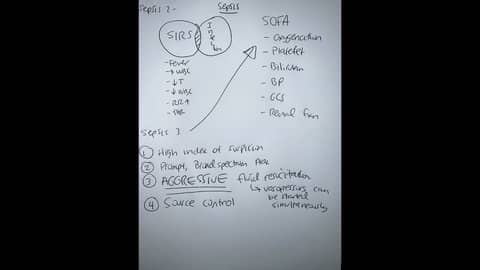 Sepsis 2 -
Sepsis
SIRS
- Fever
- ↑ WBC
- ↓ T
- ↓ WBC
- RR↑
- ↑HR
SOFA
- Oxygenation
- Platelet
- Bilirubin
- BP
- GCS
- Renal fxn
Sepsis 3
① High index of suspicion
② Prompt, Broad spectrum
③ AGGRESSIVE fluid resuscitation
↳ vasopressors can
be started
simultaneously
④ Source control